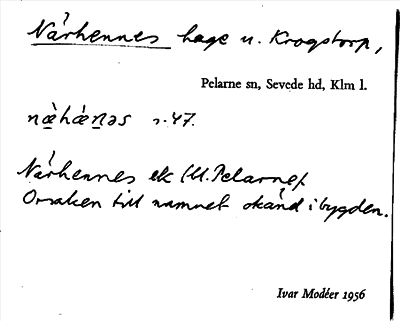 Närhennes hage u. Krogstorp,
Pelarne sn, Sevede hd, Klm l.
s. 47.
Närhennes ek (U. Pelarne)
Orsaken till namnet okänd i bygden.
Ivar Modéer 1956